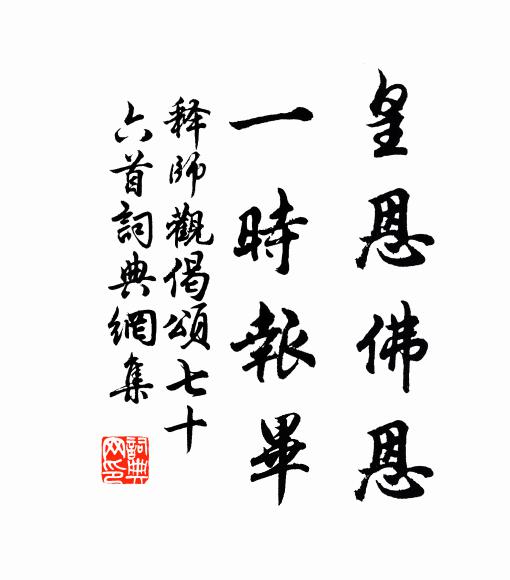 皇恩佛恩
一時報畢
释師觀偈頌七十
六首詞典網集
詞典网印